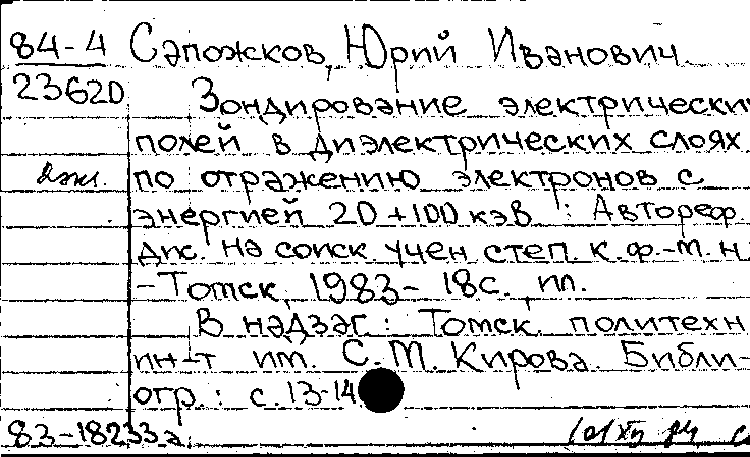 84-4 Сапожков, Юрий Иванович
23620 Зондирование электрически
полей в диэлектрических слоях
2экз. по отражению электронов с
энергией 20+100 кэв : Автореф.
дис. на соиск учен степ. к. ф.-т. н
- Томск, 1983 - 18с., ил.
В надзаг.: Томск. политехн
ин-т им. С. М. Кирова. Библи-
огр.: с. 13-14
83-18233а